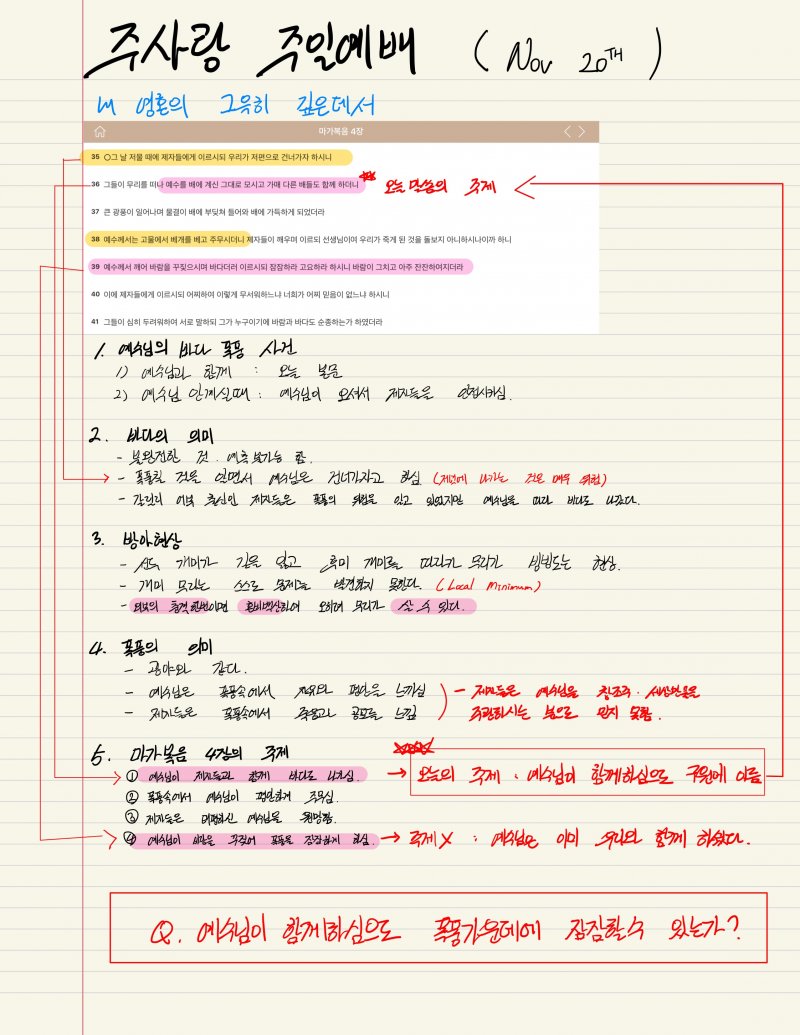 주사랑 주일예배 ( Nov 20TH )
내 영혼의 그윽히 깊은데서
마가복음 4장
35 ○그 날 저물 때에 제자들에게 이르시되 우리가 저편으로 건너가자 하시니
36 그들이 무리를 떠나 예수를 배에 계신 그대로 모시고 가매 다른 배들도 함께 하더니
오늘 말씀의 주제
37 큰 광풍이 일어나며 물결이 배에 부딪쳐 들어와 배에 가득하게 되었더라
38 예수께서는 고물에서 베개를 베고 주무시더니 제자들이 깨우며 이르되 선생님이여 우리가 죽게 된 것을 돌보지 아니하시나이까 하니
39 예수께서 깨어 바람을 꾸짖으시며 바다더러 이르시되 잠잠하라 고요하라 하시니 바람이 그치고 아주 잔잔하여지더라
40 이에 제자들에게 이르시되 어찌하여 이렇게 무서워하느냐 너희가 어찌 믿음이 없느냐 하시니
41 그들이 심히 두려워하여 서로 말하되 그가 누구이기에 바람과 바다도 순종하는가 하였더라
1. 예수님의 바다 폭풍 사건
1) 예수님과 함께 : 오늘 본문
2) 예수님 안계실때 : 예수님이 오셔서 제자들을 안심시키심.
2. 바다의 의미
- 불완전한 것. 예측불가능 함.
- 폭풍칠 것을 알면서 예수님은 건너가자고 하심 (저편에 나가는 것은 매우 위험)
- 갈릴리 어부 출신인 제자들은 폭풍의 위험을 알고 있었지만 예수님을 따라 바다로 나갔다.
3. 방아현상
- 선두 개미가 길을 잃고 후미 개미를 따라가 무리가 빙빙도는 현상.
- 개미 무리는 스스로 문제를 발견하지 못한다. (Local Minimum)
- 외부의 충격 한번이면 풍비박산하여 오히려 무리가 살 수 있다.
4. 폭풍의 의미
- 광야와 같다.
- 예수님은 폭풍속에서 자유와 평안을 느끼심
- 제자들은 폭풍속에서 죽음과 공포를 느낌
- 제자들은 예수님을 창조주. 세상만물을
주관하시는 분으로 믿지 못함.
5. 마가복음 4장의 주제
① 예수님이 제자들과 함께 바다로 나가심.
→ 오늘의 주제 : 예수님이 함께하심으로 구원에 이름
② 폭풍속에서 예수님이 편안하게 주무심.
③ 제자들은 태평하신 예수님을 원망함.
④ 예수님이 바람을 꾸짖어 폭풍을 잠잠하게 하심.
→ 주제X : 예수님은 이미 우리와 함께 하셨다.
Q. 예수님이 함께하심으로 폭풍가운데에 잠잠할수 있는가?